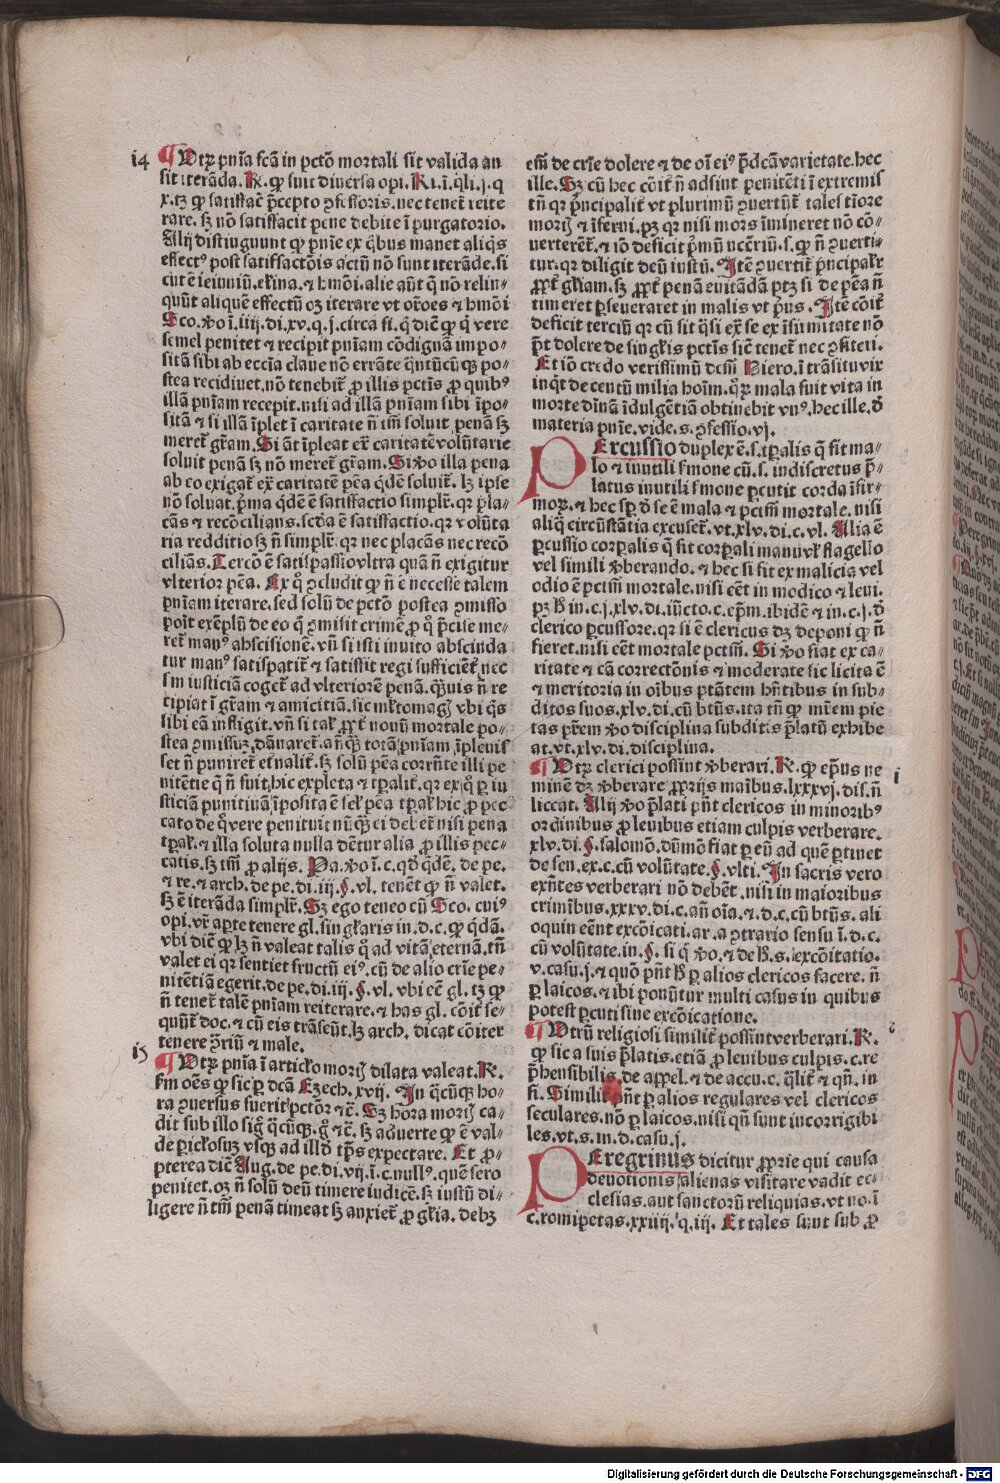 i4 ¶ Utꝝ pnīa fcā in pctō mortali sit valida an
sit iterāda. R̄. ꝙ sunt diuersa opi. Ri. ī. q̄li. j. q
x. tz ꝙ satisfac̄t p̄cepto ꝯfessoris. nec teneť reite
rare. sꝫ nō satisfacit pene debite ī purgatorio.
Alij distinguunt ꝙ pnīe ex q̄bus manet aliq̄s
effectꝰ post satisfactōis actū nō sunt iterāde. si
cut ē ieiuniū. elīna. ⁊ hmōi. alie aūt q̄ nō relin⸗
quūt aliquē effectū oꝫ iterare vt or̄oēs ⁊ hmōi
Sco. v̄o ī. iiij. di. xv. q. j. circa fi. q̄ dič ꝙ q̄ vere
semel penitet ⁊ recipit pnīam cōdignā impo⸗
sitā sibi ab ecc̄ia claue nō errāte q̄ntūcūqꝫ po⸗
stea recidiuet. nō tenebiť ꝓ illis pctīs ꝓ quibꝰ
illā pnīam recepit. nisi ad illā pnīam sibi īpo⸗
sitā ⁊ si illā īplet ī caritate ñ im̄ soluit penā sꝫ
mereť gr̄am. Si āt īpleat ex̄ caritatē volūtarie
soluit penā sꝫ nō mereť gr̄am. Si v̄o illa pena
ab eo exigať ex̄ caritatē pēa q̄dē soluiť. lꝫ ip̄e
nō soluat. p̄ma q̄dē ē satisfactio simplř. qr placa
cās ⁊ recōcilians. scd̄a ē satisfactio. qr volūta
ria redditio sꝫ ñ simplř. qr nec placās nec recō
ciliās. Tercō ē satispassio vltra quā ñ exigitur
vlterior pēa. Ex q̊ ꝯcludit ꝙ ñ ē necesse talem
pnīam iterare. sed solū de pctō postea ꝯmisso
poīt exēplū de eo q̄ ꝯmisit crimē ꝓ q̊ p̄cise me⸗
reť manꝰ abscisionē. vñ si isti inuito abscinda
tur manꝰ satispatiť ⁊ satisfit regi sufficiēť nec
fm iusticiā cogeť ad vlteriorē penā. q̄uis ñ re
cipiat ī gr̄am ⁊ amicitiā. sic mltomagꝭ vbi q̄s
sibi eā infligit. vñ si tal̄ ꝓp̄t nouū mortale po⸗
stea ꝯmissuꝫ dānareť. añq̄ꝫ totā pnīam īpleuis
set ñ punireť et̄naliť. sꝫ solū pēa corrñte illi pe
nitētie q̄ ñ fuit hic expleta ⁊ tꝑaliť. qr ex q̊ ꝑ iu
sticiā punitiuā īposita ē sel̄ pēa tꝑal̄ hic ꝓ pec
cato de q̊ vere penituit nūq̄ꝫ ei debeť nisi pena
tꝑal̄. ⁊ illa soluta nulla dēꞇur alia ꝓ illis pec⸗
catis. sꝫ im̄ ꝓ alijs. Pa. v̄o ī. c. qd̄ q̄dē. de pe.
⁊ re. ⁊ arch. de pe. di. iij. §. vl. teněť ꝙ ñ valet.
sꝫ ē iterāda simplř. Sꝫ ego teneo cū Sco. cuiꝰ
opi. vř apte tenere gl. singl̄aris in. d. c. ꝙ q̄dā.
vbi dič ꝙ lꝫ ñ valeat talis q̊ ad vitā eternā. tñ
valet ei qr sentiet fructū eiꝰ. cū de alio crīe pe⸗
nitētiā egerit. de pe. di. iij. §. vl. vbi eē gl. tꝫ ꝙ
ñ teneť talē pnīam reiterare. ⁊ has gl. cōiť se⸗
quūť doc. ⁊ cū eis trāseūt. lꝫ arch. dicat cōiter
tenere ꝯriū ⁊ male.
i5 ¶ Utꝝ pnīa ī articľo mortꝭ dilata valeat. R̄.
fm oēs ꝙ sic ꝑ dcā Ezech. xvij. In q̄cūqꝫ ho⸗
ra ꝯuersus fuerit pctōr ⁊č. Sꝫ hora mortꝭ ca⸗
dit sub illo sig̊ q̄cūqꝫ. g̊ ⁊č. sꝫ aduerte ꝙ ē val⸗
de picľosuꝫ vsqꝫ ad illd̄ tp̄s expectare. Et ꝓ⸗
pterea dič Aug. de pe. di. vij. ī. c. nullꝰ. quē sero
penitet. oꝫ ñ solū deū timere iudicē. sꝫ iustū di⸗
ligere ñ tm̄ penā timeat sꝫ anxieť ꝓ gl̄ia. debꝫ
em̄ de crīe dolere ⁊ de oī eiꝰ p̄dcā varietate. hec
ille. Sꝫ cū hec cōiť ñ adsint penitēti ī extremis
tñ qr p̄ncipaliť vt plurimū ꝯuertūť tales tīore
mortꝭ ⁊ īferni. pꝫ qr nisi mors īmineret nō cō⸗
uerterēť. ⁊ iō deficit p̄mū ncēriū. s. ꝙ ñ ꝯuerti⸗
tur. qr diligit deū iustū. Itē ꝯuertiť p̄ncipalř
ꝓpť gl̄iam. sꝫ ꝓpť penā euitādā ptꝫ si de pēa ñ
timeret ꝑseueraret in malis vt pr̄us. Itē cōiť
deficit terciū qr cū sit q̄si ex̄ se ex īfirmitate nō
p̄t dolere de singl̄is pctīs sič teneť nec ꝯfiteri.
Et iō credo verissimū dc̄m Hiero. ī trāsitu vix
inq̄t de centū milia hoīm. q̊ꝝ mala fuit vita in
morte diīnā īdulgētiā obtinebit vnꝰ. hec ille. d̄
materia pnīe. vide. s. ꝯfessio. vj.
PErcussio duplex ē. s. tꝑalis q̄ fit ma⸗
lo ⁊ inutili s̄mone cū. s. indiscretus p̄⸗
latus inutili s̄mone ꝑcutit corda īfir⸗
moꝝ. ⁊ hec sp̄ d̄ se ē mala ⁊ pctm̄ mortale. nisi
aliq̄ circūstātia excuseť. vt. xlv. di. c. vl. Alia ē
ꝑcussio corꝑalis q̄ fit corꝑali manu vľ flagello
vel simili v̄berando. ⁊ hec si fit ex malicia vel
odio ē pctm̄ mortale. nisi eēt in modico ⁊ leui.
pꝫ h̄ in. c. j. xlv. di. iūcto. c. ep̄m. ibidē ⁊ in. c. j. d̄
clerico ꝑcussore. qr si ē clericus dꝫ deponi ꝙ ñ
fieret. nisi eēt mortale pctm̄. Si v̄o fiat ex ca⸗
ritate ⁊ cā correctōnis ⁊ moderate sic licita ē
⁊ meritoria in oībus ptātem hñtibus in sub⸗
ditos suos. xlv. di. cū btūs. ita tñ ꝙ mr̄em pie
tas pr̄em v̄o disciplina subditis p̄latū exhibe
at. vt. xlv. di. disciplina.
¶ Utꝝ clerici possint v̄berari. R̄. ꝙ ep̄us ne i
minē dꝫ v̄berare ꝓprijs maībus. lxxxvj. dis. ñ
liceat. Alij v̄o p̄lati pñt clericos in minoribꝰ
ordinibus ꝓ leuibus etiam culpis verberare.
xlv. di. §. salomō. dūmō fiat ꝑ eū ad quē ꝑtinet
de sen. ex. c. cū volūtate. §. vlti. In sacris vero
exñtes verberari nō debēt. nisi in maioribus
crimībus. xxxv. di. c. añ oīa. ⁊. d. c. cū btūs. ali
oquin eēnt excōicati. ar. a ꝯtrario sensu ī. d. c.
cū volūtate. in. §. si q̄ v̄o. ⁊ de h̄. s. excōitatio.
v. casu. j. ⁊ quō pñt h̄ ꝑ alios clericos facere. ñ
ꝑ laicos. ⁊ ibi ponūtur multi casus in quibus
potest ꝑcuti sine excōicatione.
¶ Utrū religiosi similiť possint verberari. R̄.
ꝙ sic a suis p̄latis. etiā ꝓ leuibus culpis. c. re
p̄hensibilis. de appel. ⁊ de accu. c. q̄liť ⁊ qñ. in
fi. Similiť pñt ꝑ alios regulares vel clericos
seculares. nō ꝑ laicos. nisi qñ sunt incorrigibi
les. vt. s. in. d. casu. j.
PEregrinus dicitur ꝓprie qui causa
deuotionis alienas visitare vadit ec⸗
clesias. aut sanctorū reliquias. vt no. ī
c. romipetas. xxiiij. q. iij. Et tales sunt sub ꝓ
Digitalisierung gefördert durch die Deutsche Forschungsgemeinschaft - DFG